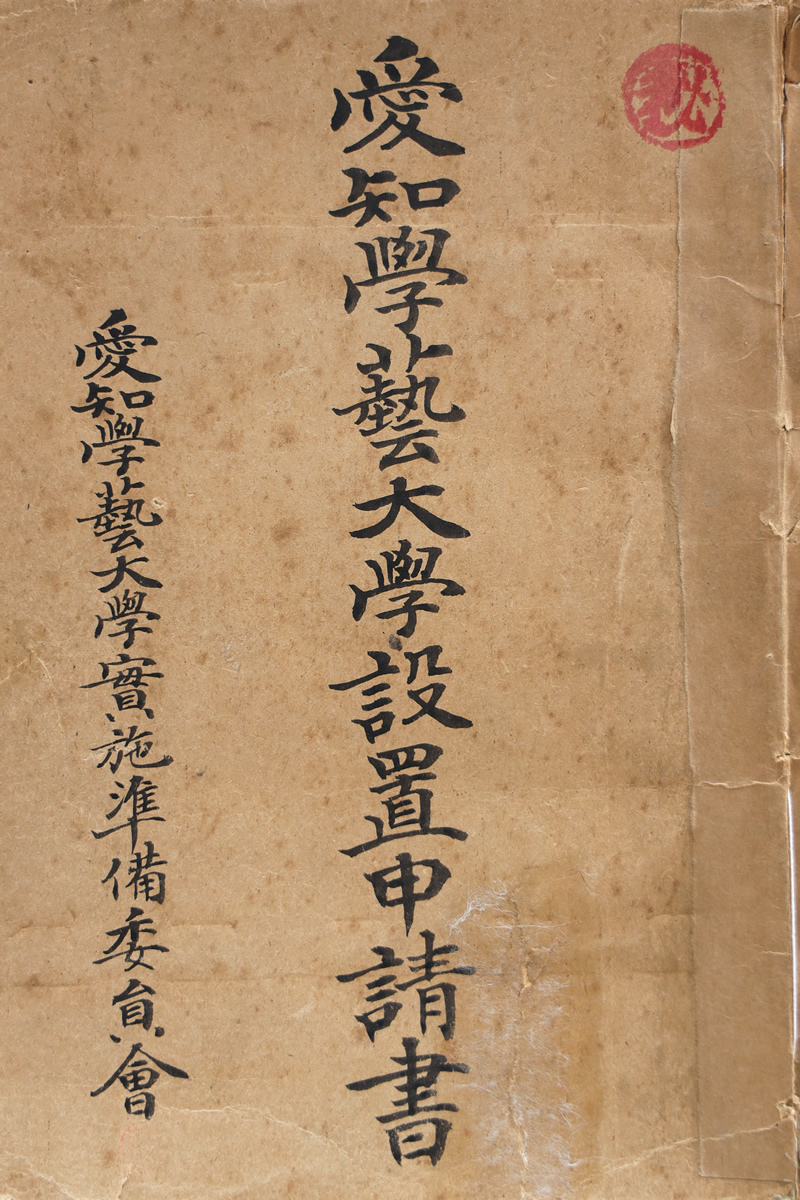 秘
愛知學藝大學設置申請書
愛知學藝大學實施準備委員會